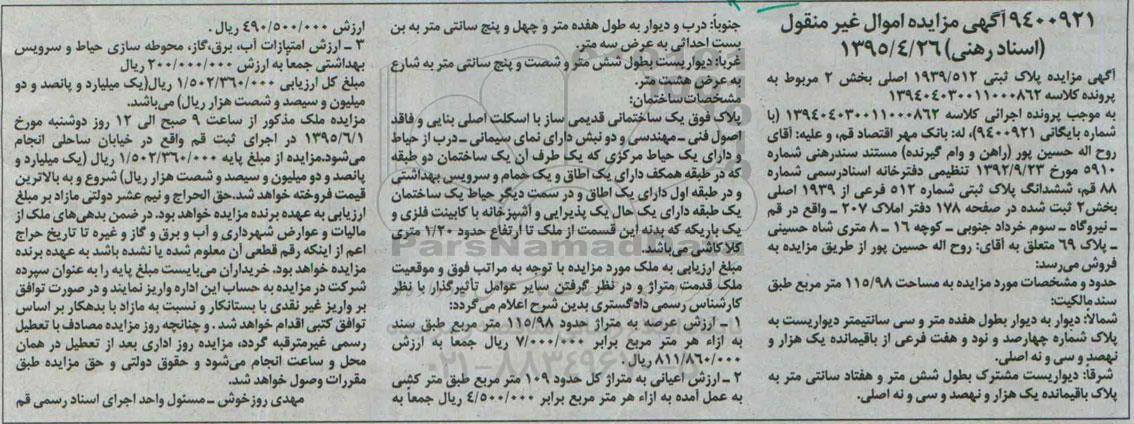 ۹۴۰۰۹۲۱ آگهی مزایده اموال غیر منقول
(اسناد رهنی) ۱۳۹۵/۴/۲۶
آگهی مزایده پلاک ثبتی ۱۹۳۹/۵۱۲ اصلی بخش ۲ مربوط به
پرونده کلاسه ۱۳۹۴۰۴۰۳۰۰۱۱۰۰۰۸۶۲
به موجب پرونده اجرائی کلاسه ۱۳۹۴۰۴۰۳۰۰۱۱۰۰۰۸۶۲ (با
شماره بایگانی ۹۴۰۰۹۲۱)، له: بانک مهر اقتصاد قم، و علیه: آقای
روح اله حسین پور (راهن و وام گیرنده) مستند سندرهنی شماره
۵۹۱۰ مورخ ۱۳۹۲/۹/۲۳ تنظیمی دفترخانه اسنادرسمی شماره
۸۸ قم، ششدانگ پلاک ثبتی شماره ۵۱۲ فرعی از ۱۹۳۹ اصلی
بخش۲ ثبت شده در صفحه ۱۷۸ دفتر املاک ۲۰۷ ـ واقع در قم
ـ نیروگاه ـ سوم خرداد جنوبی ـ کوچه ۱۶ ـ ۸ متری شاه حسینی
ـ پلاک ۶۹ متعلق به آقای: روح اله حسین پور از طریق مزایده به
فروش می‌رسد:
حدود و مشخصات مورد مزایده به مساحت ۱۱۵/۹۸ متر مربع طبق
سند مالکیت:
شمالاً: دیوار به دیوار بطول هفده متر و سی سانتیمتر دیواریست به
پلاک شماره چهارصد و نود و هفت فرعی از باقیمانده یک هزار و
نهصد و سی و نه اصلی.
شرقا: دیواریست مشترک بطول شش متر و هفتاد سانتی متر به
پلاک باقیمانده یک هزار و نهصد و سی و نه اصلی.
جنوبا: درب و دیوار به طول هفده متر و چهل و پنج سانتی متر به بن
بست احداثی به عرض سه متر.
غربا: دیواریست بطول شش متر و شصت و پنج سانتی متر به شارع
به عرض هشت متر.
مشخصات ساختمان:
پلاک فوق یک ساختمانی قدیمی ساز با اسکلت اصلی بنایی و فاقد
اصول فنی ـ مهندسی و دو نبش دارای نمای سیمانی ـ درب از حیاط
و دارای یک حیاط مرکزی که یک طرف آن یک ساختمان دو طبقه
که در طبقه همکف دارای یک اطاق و یک حمام و سرویس بهداشتی
و در طبقه اول دارای یک اطاق و در سمت دیگر حیاط یک ساختمان
یک طبقه دارای یک حال یک پذیرایی و آشپزخانه با کابینت فلزی و
یک باریکه که بدنه این قسمت از ملک تا ارتفاع حدود ۱/۲۰ متری
کلا کاشی می‌باشد
مبلغ ارزیابی به ملک مورد مزایده با توجه به مراتب فوق و موقعیت
ملک قدمت متراژ و در نظر گرفتن سایر عوامل تأثیرگذار با نظر
کارشناس رسمی دادگستری بدین شرح اعلام می‌گردد:
۱ ـ ارزش عرصه به متراژ حدود ۱۱۵/۹۸ متر مربع طبق سند
به ازاء هر متر مربع برابر ۷/۰۰۰/۰۰۰ ریال جمعاً به ارزش
۸۱۱/۸۶۰/۰۰۰ ریال.
۲ ـ ارزش اعیانی به متراژ کل حدود ۱۰۹ متر مربع طبق متر کشی
به عمل آمده به ازاء هر متر مربع برابر ۴/۵۰۰/۰۰۰ ریال جمعاً به
ارزش ۴۹۰/۵۰۰/۰۰۰ ریال .
۳ ـ ارزش امتیازات آب، برق،گاز، محوطه سازی حیاط و سرویس
بهداشتی جمعا به ارزش ۲۰۰/۰۰۰/۰۰۰ ریال
مبلغ کل ارزیابی ۱/۵۰۲/۳۶۰/۰۰۰ ریال(یک میلیارد و پانصد و دو
میلیون و سیصد و شصت هزار ریال) می‌باشد.
مزایده ملک مذکور از ساعت ۹ صبح الی ۱۲ روز دوشنبه مورخ
۱۳۹۵/۶/۱ در اجرای ثبت قم واقع در خیابان ساحلی انجام
می‌شود.مزایده از مبلغ پایه ۱/۵۰۲/۳۶۰/۰۰۰ ریال (یک میلیارد و
پانصد و دو میلیون و سیصد و شصت هزار ریال) شروع و به بالاترین
قیمت فروخته خواهد شد.حق الحراج و نیم عشر دولتی مازاد بر مبلغ
ارزیابی به عهده برنده مزایده خواهد بود. در ضمن بدهی‌های ملک از
مالیات و عوارض شهرداری و آب و برق و گاز و غیره تا تاریخ حراج
اعم از اینکه رقم قطعی آن معلوم شده یا نشده باشد به عهده برنده
مزایده خواهد بود. خریداران می‌بایست مبلغ پایه را به عنوان سپرده
شرکت در مزایده به حساب این اداره واریز نمایند و در صورت توافق
بر واریز غیر نقدی با بستانکار و نسبت به مازاد با بدهکار بر اساس
توافق کتبی اقدام خواهد شد . و چنانچه روز مزایده مصادف با تعطیل
رسمی غیرمترقبه گردد، مزایده روز اداری بعد از تعطیل در همان
محل و ساعت انجام می‌شود و حقوق دولتی و حق مزایده طبق
مقررات وصول خواهد شد.
مهدی روزخوش ـ مسئول واحد اجرای اسناد رسمی قم
ParsNamadData